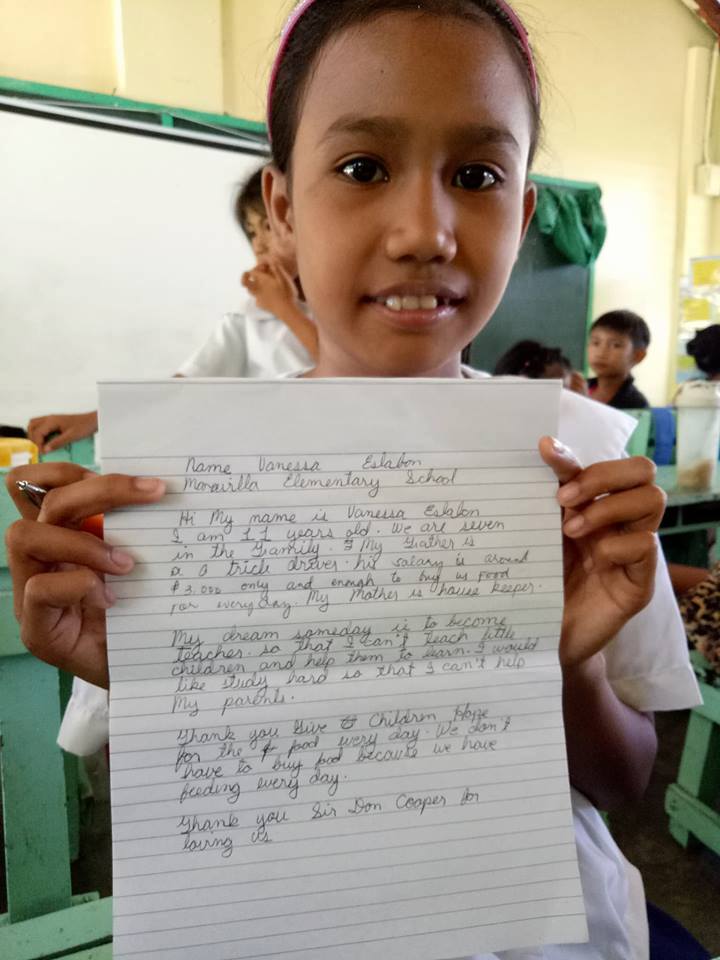 Name Vanessa Eslabon
Elementary School
Hi My name is Vanessa Eslabon
I am 11 years old. We are seven
in the Family. My Father is
a a tricle driver. his salary is around
3.000 only and enough to buy us food
for everyday. My Mother is house keeper.
My dream someday is to become
teacher. so that I can't teach little
children and help them to learn. I would
like study hard so that I can't help
my parents.
Thank you Give Children Hope
for the food every day. We don't
have to buy food because we have
feeding every day.
Thank you Sir Don Cooper for
loving us